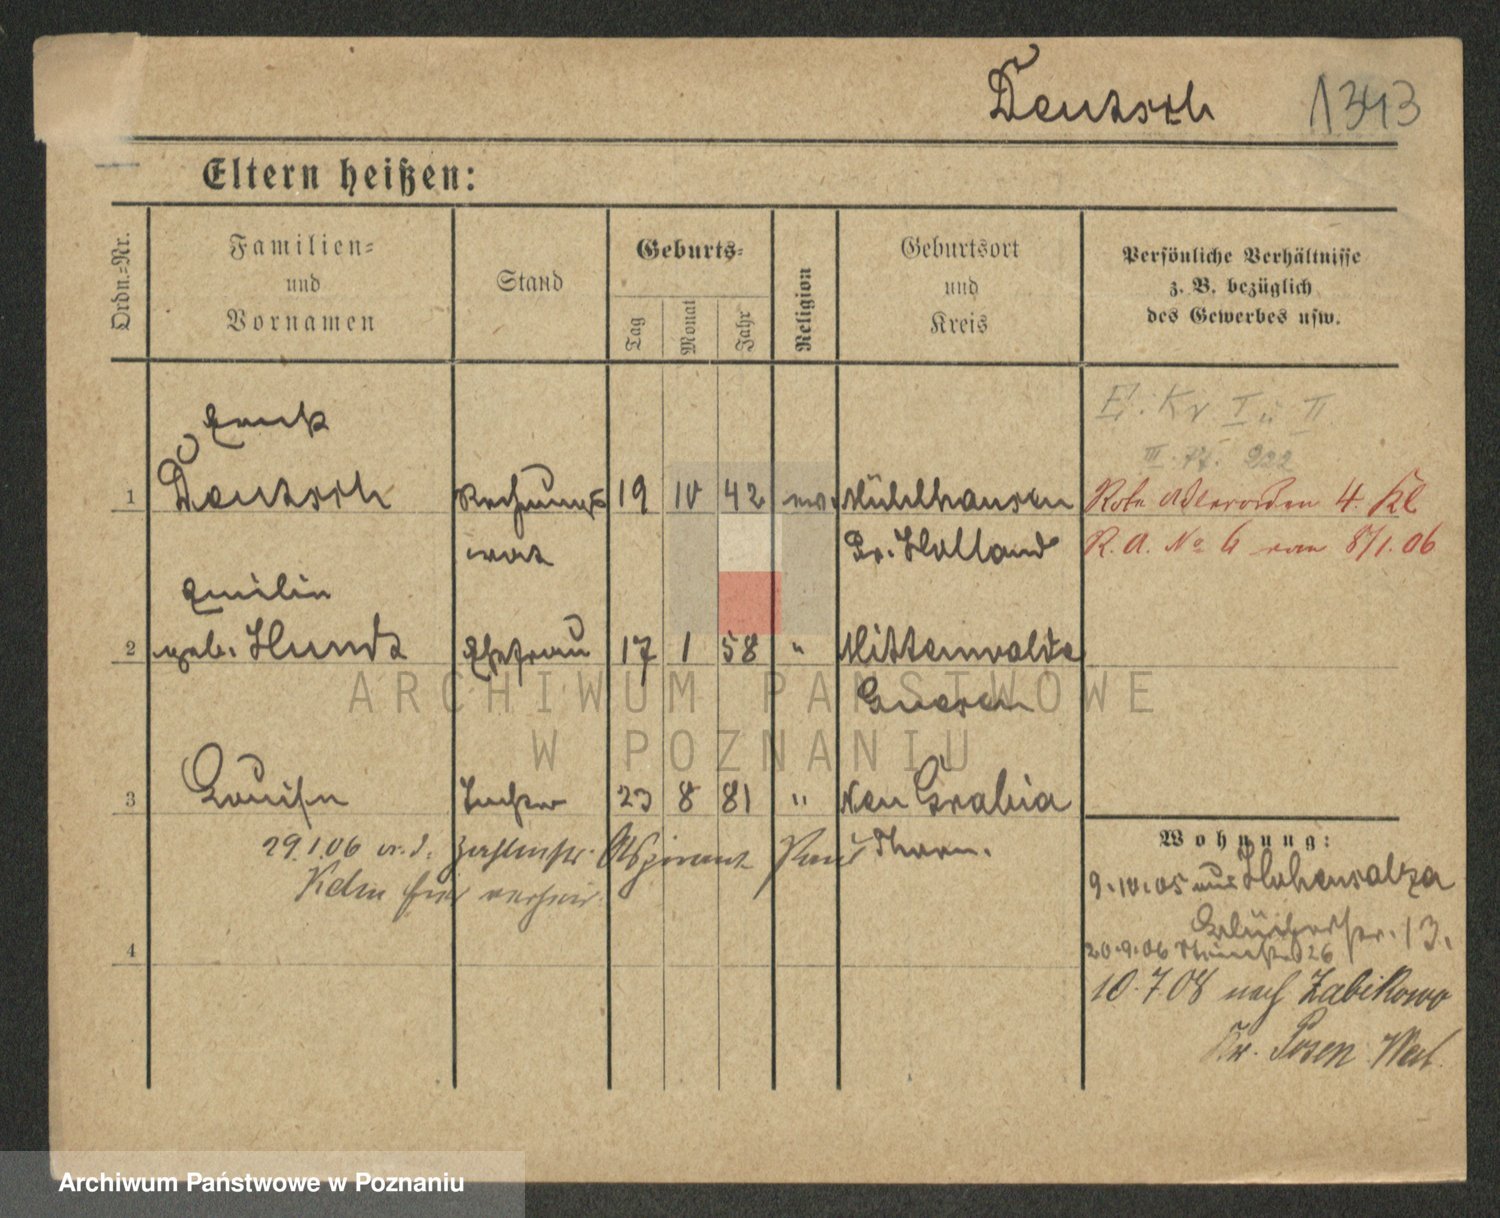 Deutsch 1343
Eltern heißen:
Ordn.=Nr.
Familien=
und
Vornamen
Stand
Geburts=
Tag
Monat
Jahr
Religion
Geburtsort
und
Kreis
Persönliche Verhältnisse
z. B. bezüglich
des Gewerbes usw.
E. Kr I u II
III. 222
1 Deutsch Rechnungs 19 10 42 ev. Mühlhausen Rote Adlerorden 4. Kl
rat Pr. Holland R. A. No 6 vom 8/1. 06
Emilie
2 geb. Hundt Ehefrau 17 1 58 " Mittenwalde
Gnesen
3 Louise Tochter 23 8 81 " Neu Grabia
29.1.06 m. d. Zahlmstr. Aspirant Paul Thorn.
hier verheir.
Wohnung:
9.10.05 aus Hohensalza
Blücherstr. 13.
20.9.06 26
4
10.7.08 nach Zabikowo
Kr. Posen West.
ARCHIWUM PAŃSTWOWE
W POZNANIU
Archiwum Państwowe w Poznaniu